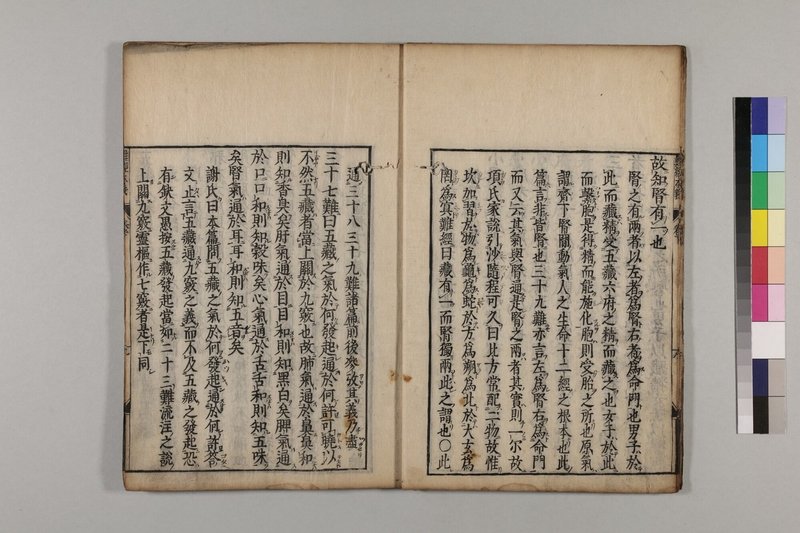 故知腎有一也
腎之有兩者以左者為腎右者為命門也男子於
此而藏精受五藏六府之精而藏之也女子於此
而繫胞是得精而能施化胞則受胎之所也原氣
謂齊下腎間動氣人之生命十二經之根本也此
篇言非皆腎也三十九難亦言左為腎右為命門
而又云其氣與腎通是腎之兩者其實則一尔故
項氏家說引沙隨程可久曰北方常配二物故惟
坎加習於物為龜為蛇於方為朔為北於大玄為
罔為冥難經曰藏有一而腎獨兩此之謂也〇此
通三十八三十九難諸篇前後參攷其義乃盡
三十七難曰五藏之氣於何發起通於何許可曉以
不然五藏者當上關於九竅也故肺氣通於鼻鼻和
則知香臭矣肝氣通於目目和則知黑白矣脾氣通
於口口和則知穀味矣心氣通於舌舌和則知五味
矣腎氣通於耳耳和則知五音矣
謝氏曰本篇問五藏之氣於何發起通於何許答
文止言五藏通九竅之義而不及五藏之發起恐
有缺文愚按五藏發起當如二十三難流注之說
上關九竅靈樞作七竅者是下同